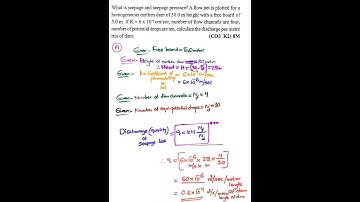 What is seepage and seepage pressure? A flow net is plotted for a
homogeneous earthen dam of 30.0 m height with a free board of
5.0 m. If K = 6 x 10⁻⁴ cm/sec, number of flow channels are 4,
number of potential drops are ten, calculate the discharge per metre
run of dam. (CO3: K2) 8M
A
Given:- Free board = 5.0 meter
Given:- Height of earthen dam = 30 meter
∴ Head = H = (30-5) = 25 m
Given:- k = Coefficient of permeability of Soil = 6×10⁻⁴ cm/sec
= 6×10⁻⁶ m/sec
Given:- Number of flow channels = Nf = 4
Given:- Number of equipotential drops = Nd = 10
Discharge (Quantity) of Seepage loss = q = kH Nf/Nd
∴ q = 6×10⁻⁶ × 25 × 4/10
= 60×10⁻⁶ m³/sec/meter length of dam
= 0.6×10⁻⁴ m³/s/meter length of dam